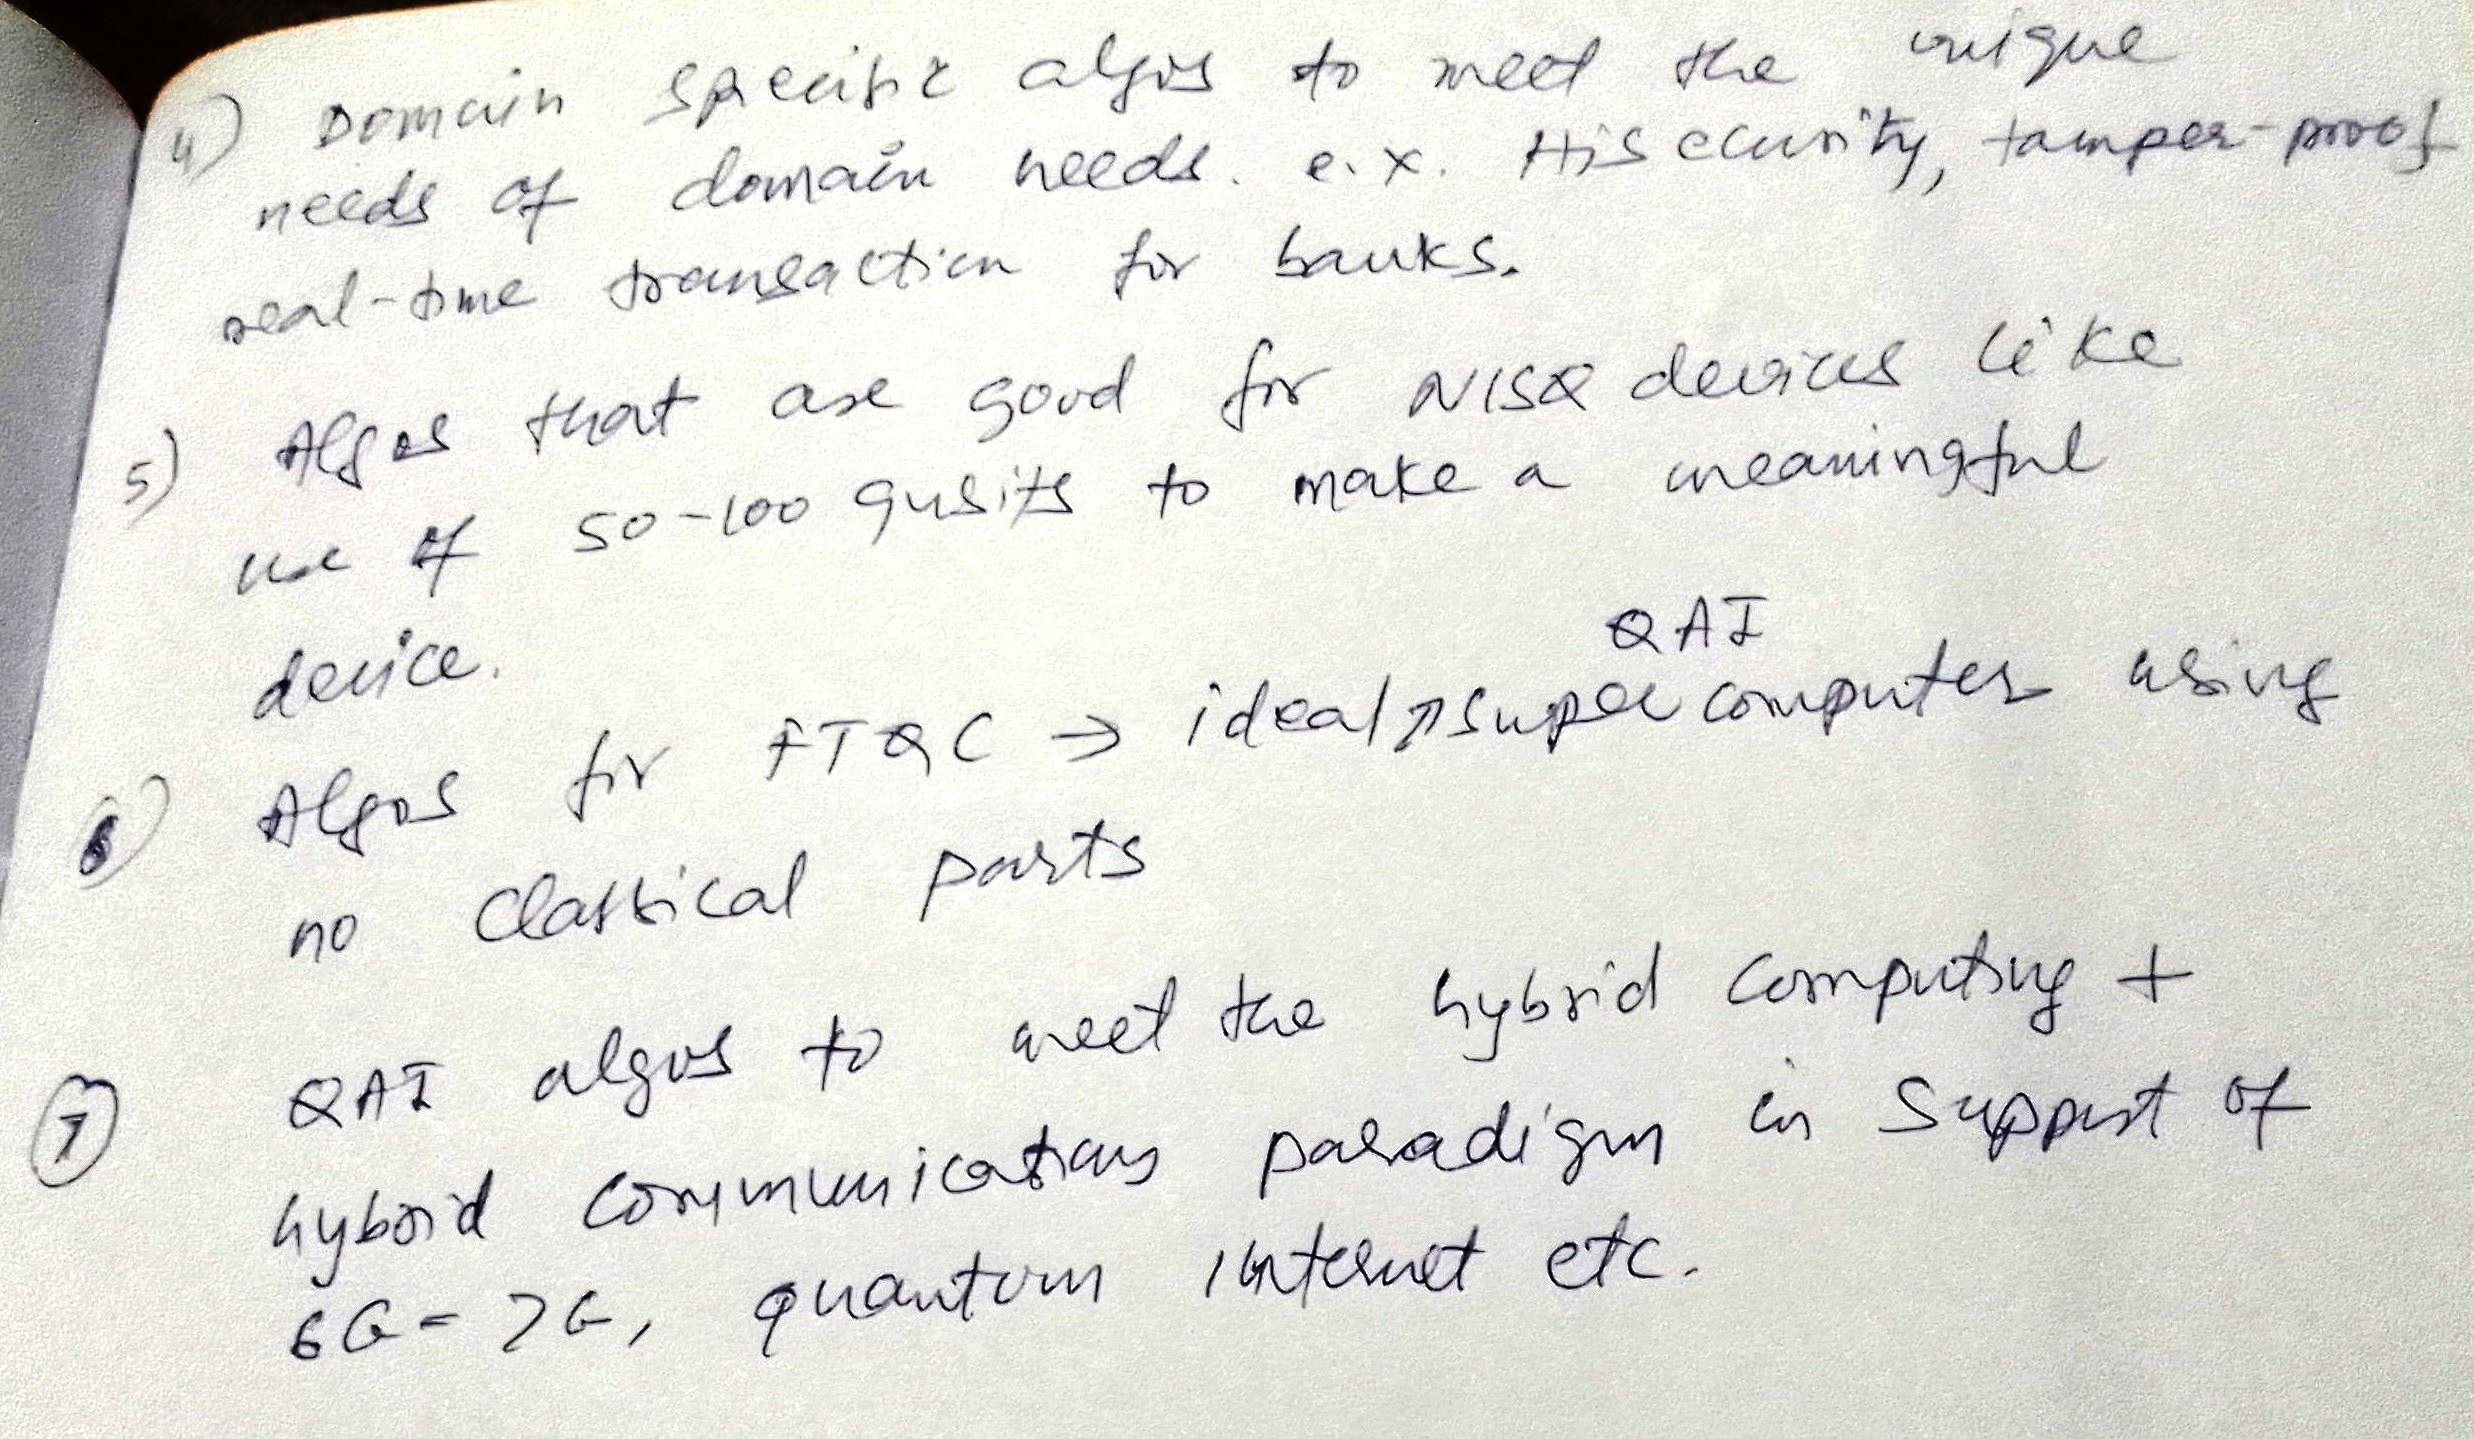 4) Domain specific algos to meet the unique
needs of domain needs. e.x. Hi security, tamper-proof
real-time transaction for banks.
5) Algos that are good for NISQ devices like
use of 50-100 qubits to make a meaningful
device.
QAI
6) Algos for FTQC → ideal ↗ super computer using
no classical parts
7 QAI algos to meet the hybrid computing +
hybrid communications paradigm in support of
6G-7G, quantum internet etc.